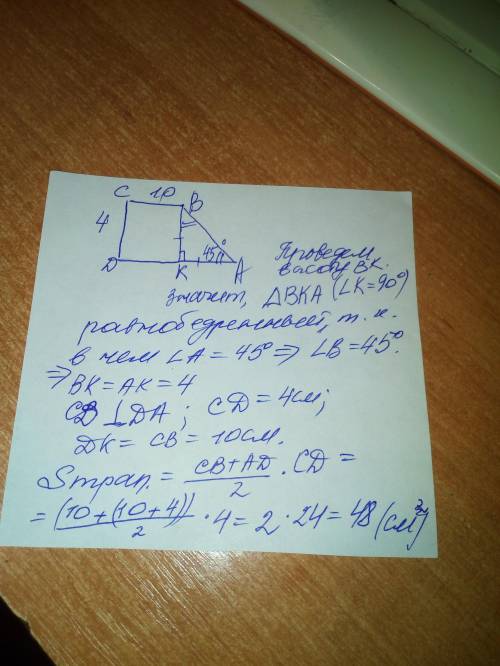 C 10 B
4
D K 45° A
Проведем
высоту BK.
значит, △BKA (∠K=90°)
равнобедренный, т.к.
в нем ∠A = 45° ⇒ ∠B = 45°.
⇒ BK = AK = 4
CD ⊥ DA; CD = 4см;
DK = CB = 10см.
Sтрап. = (CB+AD)/2 · CD =
= (10+(10+4))/2 · 4 = 2 · 24 = 48 (см²)